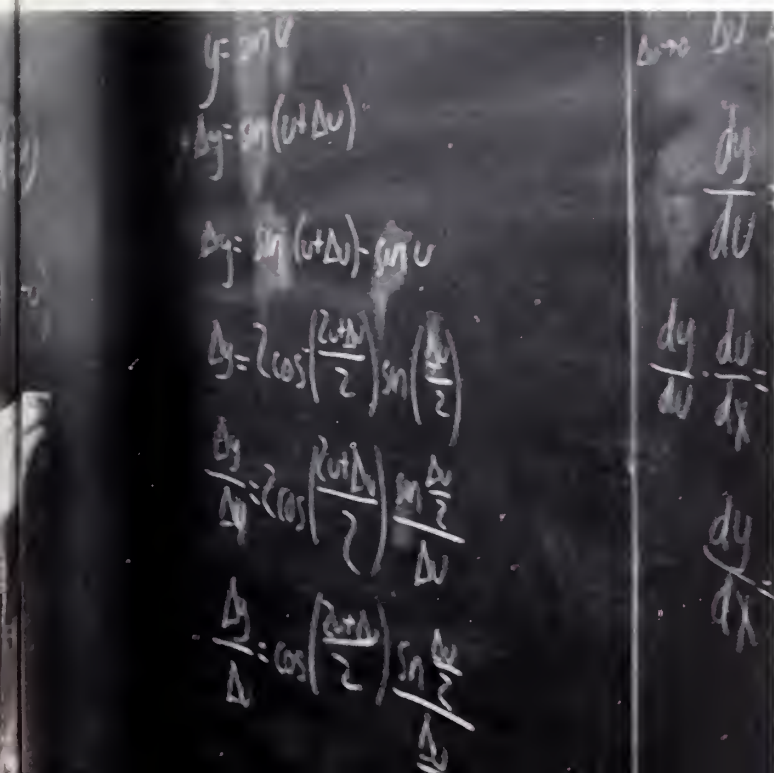 y = sin u
Δy = sin (u+Δu)
Δy = sin (u+Δu) - sin u
Δy = 2 cos ((2u+Δu)/2) sin (Δu/2)
Δy/Δy = 2 cos ((2u+Δu)/2) (sin Δu/2)/Δu
Δy/Δ = cos ((2u+Δu)/2) (sin Δu/2)/Δu
Δu→0
dy/du
dy/du · du/dx =
dy/dx =